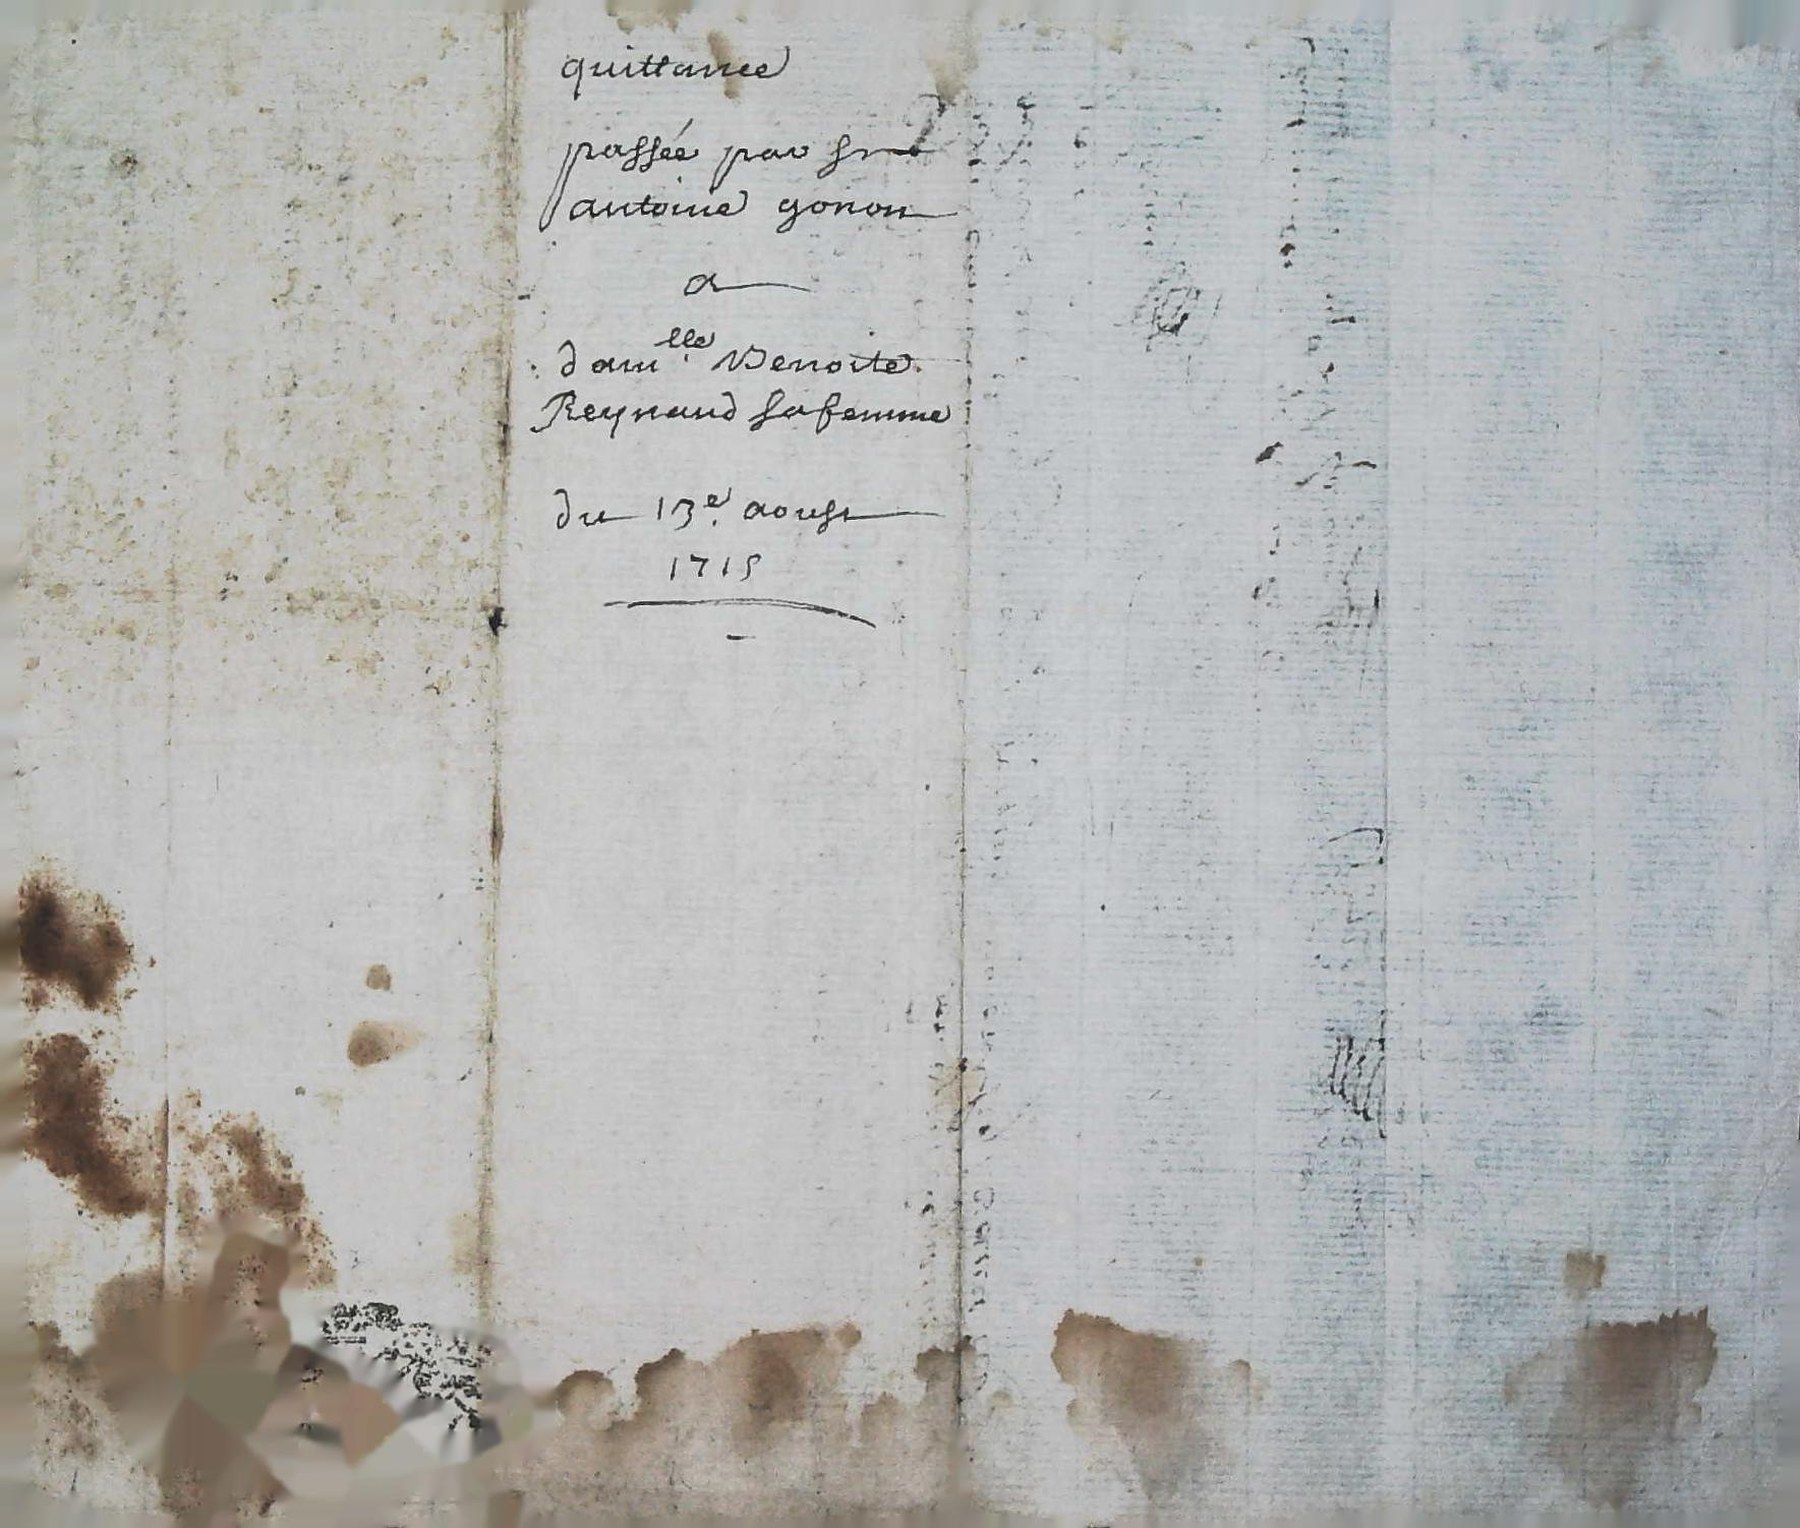 quittance
passée par sr
antoine gonon
a
damlle Benoite
Reynaud sa femme
du 13e aoust
1715